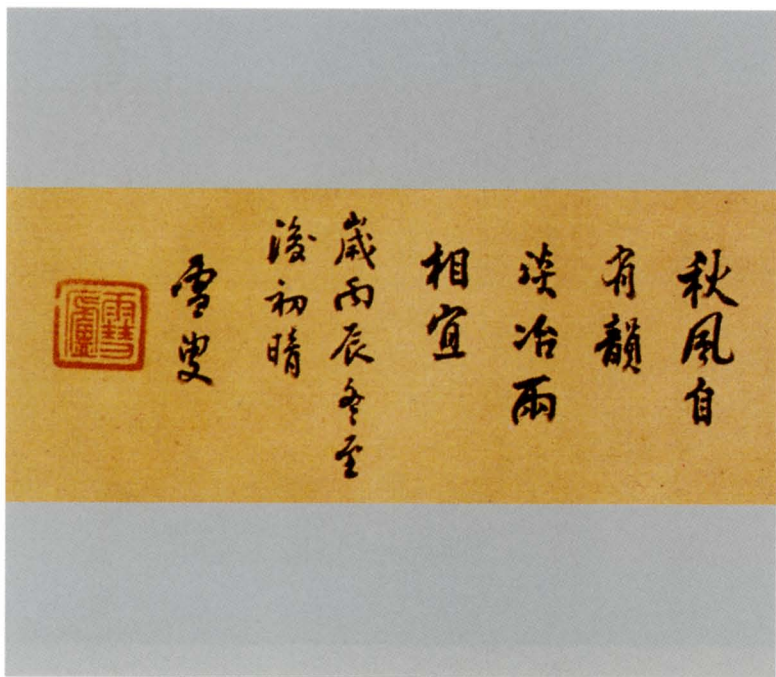 秋風自
有韻
淡冶雨
相宜
歲丙辰冬至
後初晴
雪叟